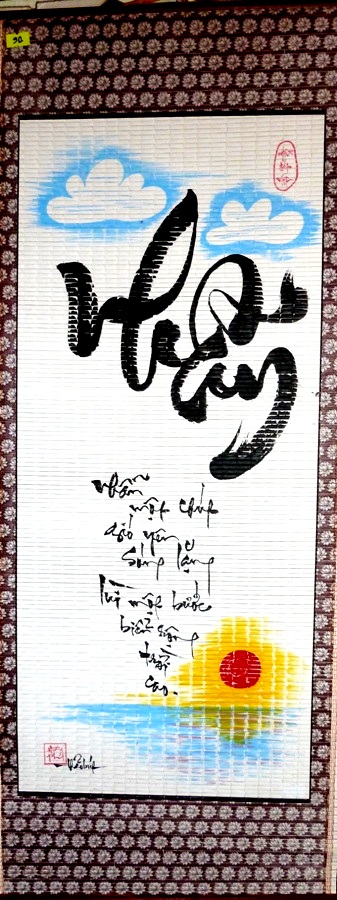 Nhẫn
nhẫn
một chút
gió yên
sóng lặng
lùi một bước
biển rộng
trời
cao.